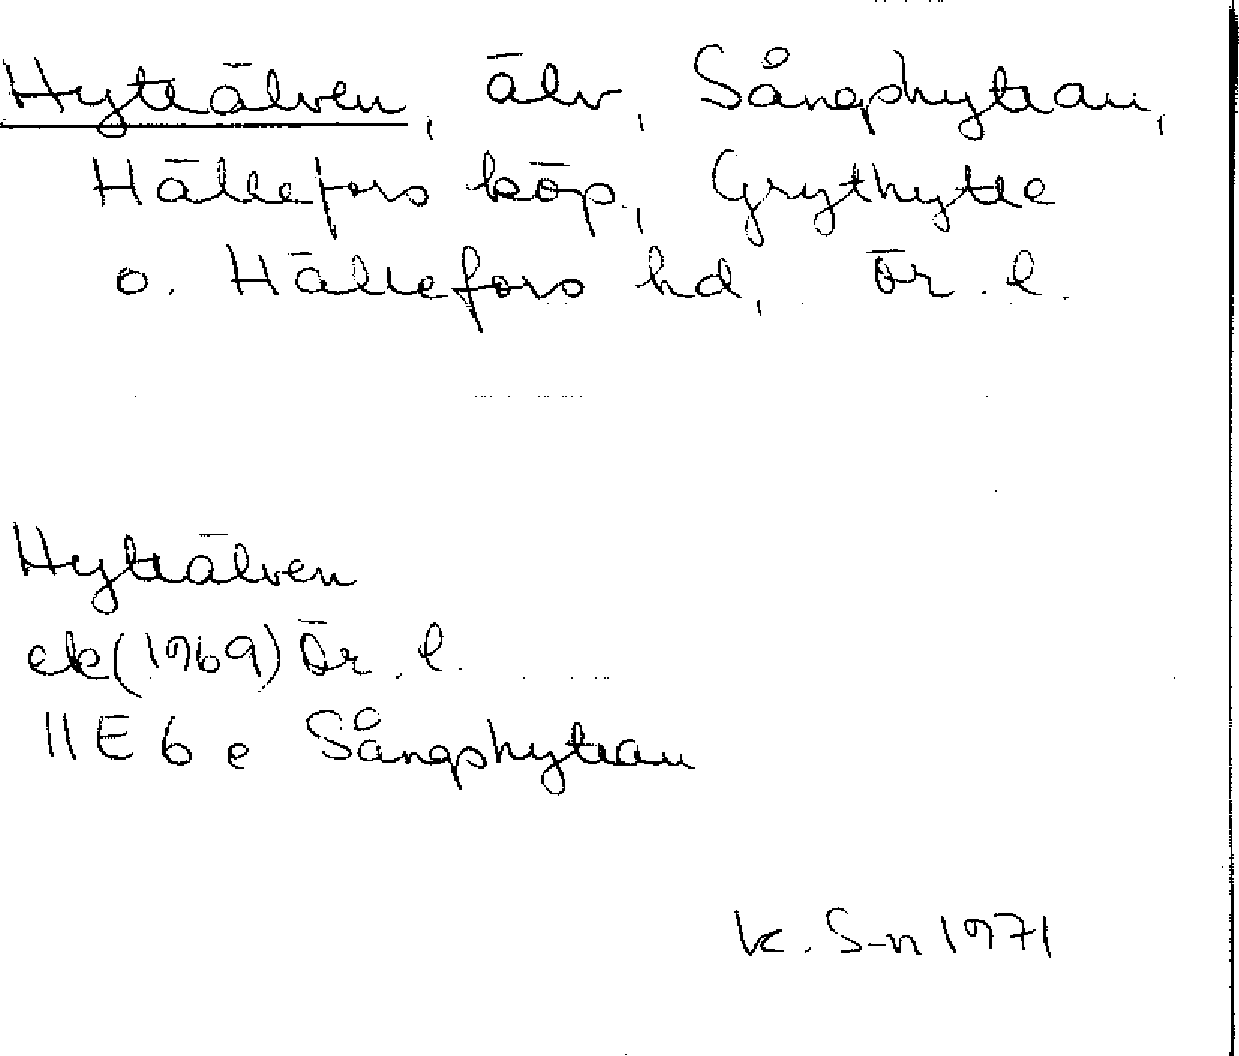 Hytteälven, älv, Sångshyttan,
Hällefors köp., Grythytte
o. Hällefors hd, Ör. l.
Hytteälven
ek (1969) Ör. l.
11E 6e Sångshyttan
K. S-n 1971